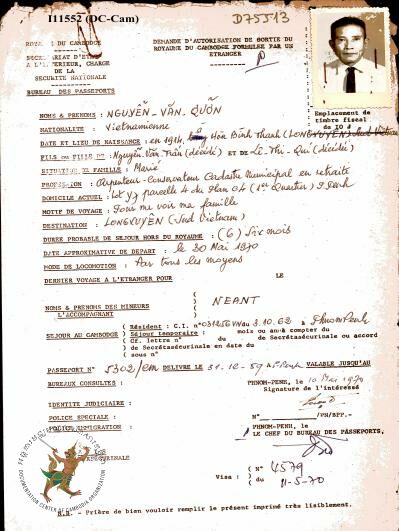 I11552 (DC-Cam)
D75513
ROYAUME DU CAMBODGE
SECRETARIAT D'ETAT
A L'INTERIEUR, CHARGE
DE LA
SECURITE NATIONALE
BUREAU DES PASSEPORTS
DEMANDE D'AUTORISATION DE SORTIE DU
ROYAUME DU CAMBODGE FORMULEE PAR UN
ETRANGER
Emplacement de
timbre fiscal
de 10 $
NOMS & PRENOMS : NGUYỄN - VĂN - QUỐN
NATIONALITE : Vietnamienne
DATE ET LIEU DE NAISSANCE : en 1914, Hòa Bình Thạnh (LONGXUYÊN) Sud Vietnam
FILS ou FILLE DE : Nguyễn Văn Trân (décédé) ET DE Lê - Thị - Qui (décédée)
SITUATION DE FAMILLE : Marié
PROFESSION : Arpenteur - Conservateur Cadastre Municipal en retraite
DOMICILE ACTUEL : Lot parcelle 4 du Plan 04 (1er Quartier) P. Penh
MOTIF DE VOYAGE : Pour me voir ma famille
DESTINATION : LONGXUYÊN (Sud Vietnam)
DUREE PROBABLE DE SEJOUR HORS DU ROYAUME : (6) Six mois
DATE APPROXIMATIVE DE DEPART : le 30 Mai 1970
MODE DE LOCOMOTION : Par tous les moyens
DERNIER VOYAGE A L'ETRANGER POUR LE
NOMS & PRENOMS DES MINEURS
L'ACCOMPAGNANT
NEANT
SEJOUR AU CAMBODGE
( Résident : C.I. n° 031256VN du 3.10.62 à Phnom Penh
( Séjour temporaire : mois ou an à compter du
( Cf. lettre n° du de Secrétasécurinale ou accord
( de Secrétasécurinale en date du
( sous n°
PASSEPORT N° 5302/em DELIVRE LE 31.12.59 à P. Penh VALABLE JUSQU'AU
BUREAUX CONSULTES :
PHNOM-PENH, le 10 Mai 1970
Signature de l'intéressé
IDENTITE JUDICIAIRE :
POLICE SPECIALE :
POLICE IMMIGRATION :
N° /PN/BPP.-
PHNOM-PENH, le
LE CHEF DU BUREAU DES PASSEPORTS,
Visa : ( N° 4579
( du 11-5-70
DOCUMENTATION CENTER OF CAMBODIA ORGANIZATION
N.B. - Prière de bien vouloir remplir le présent imprimé très lisiblement.